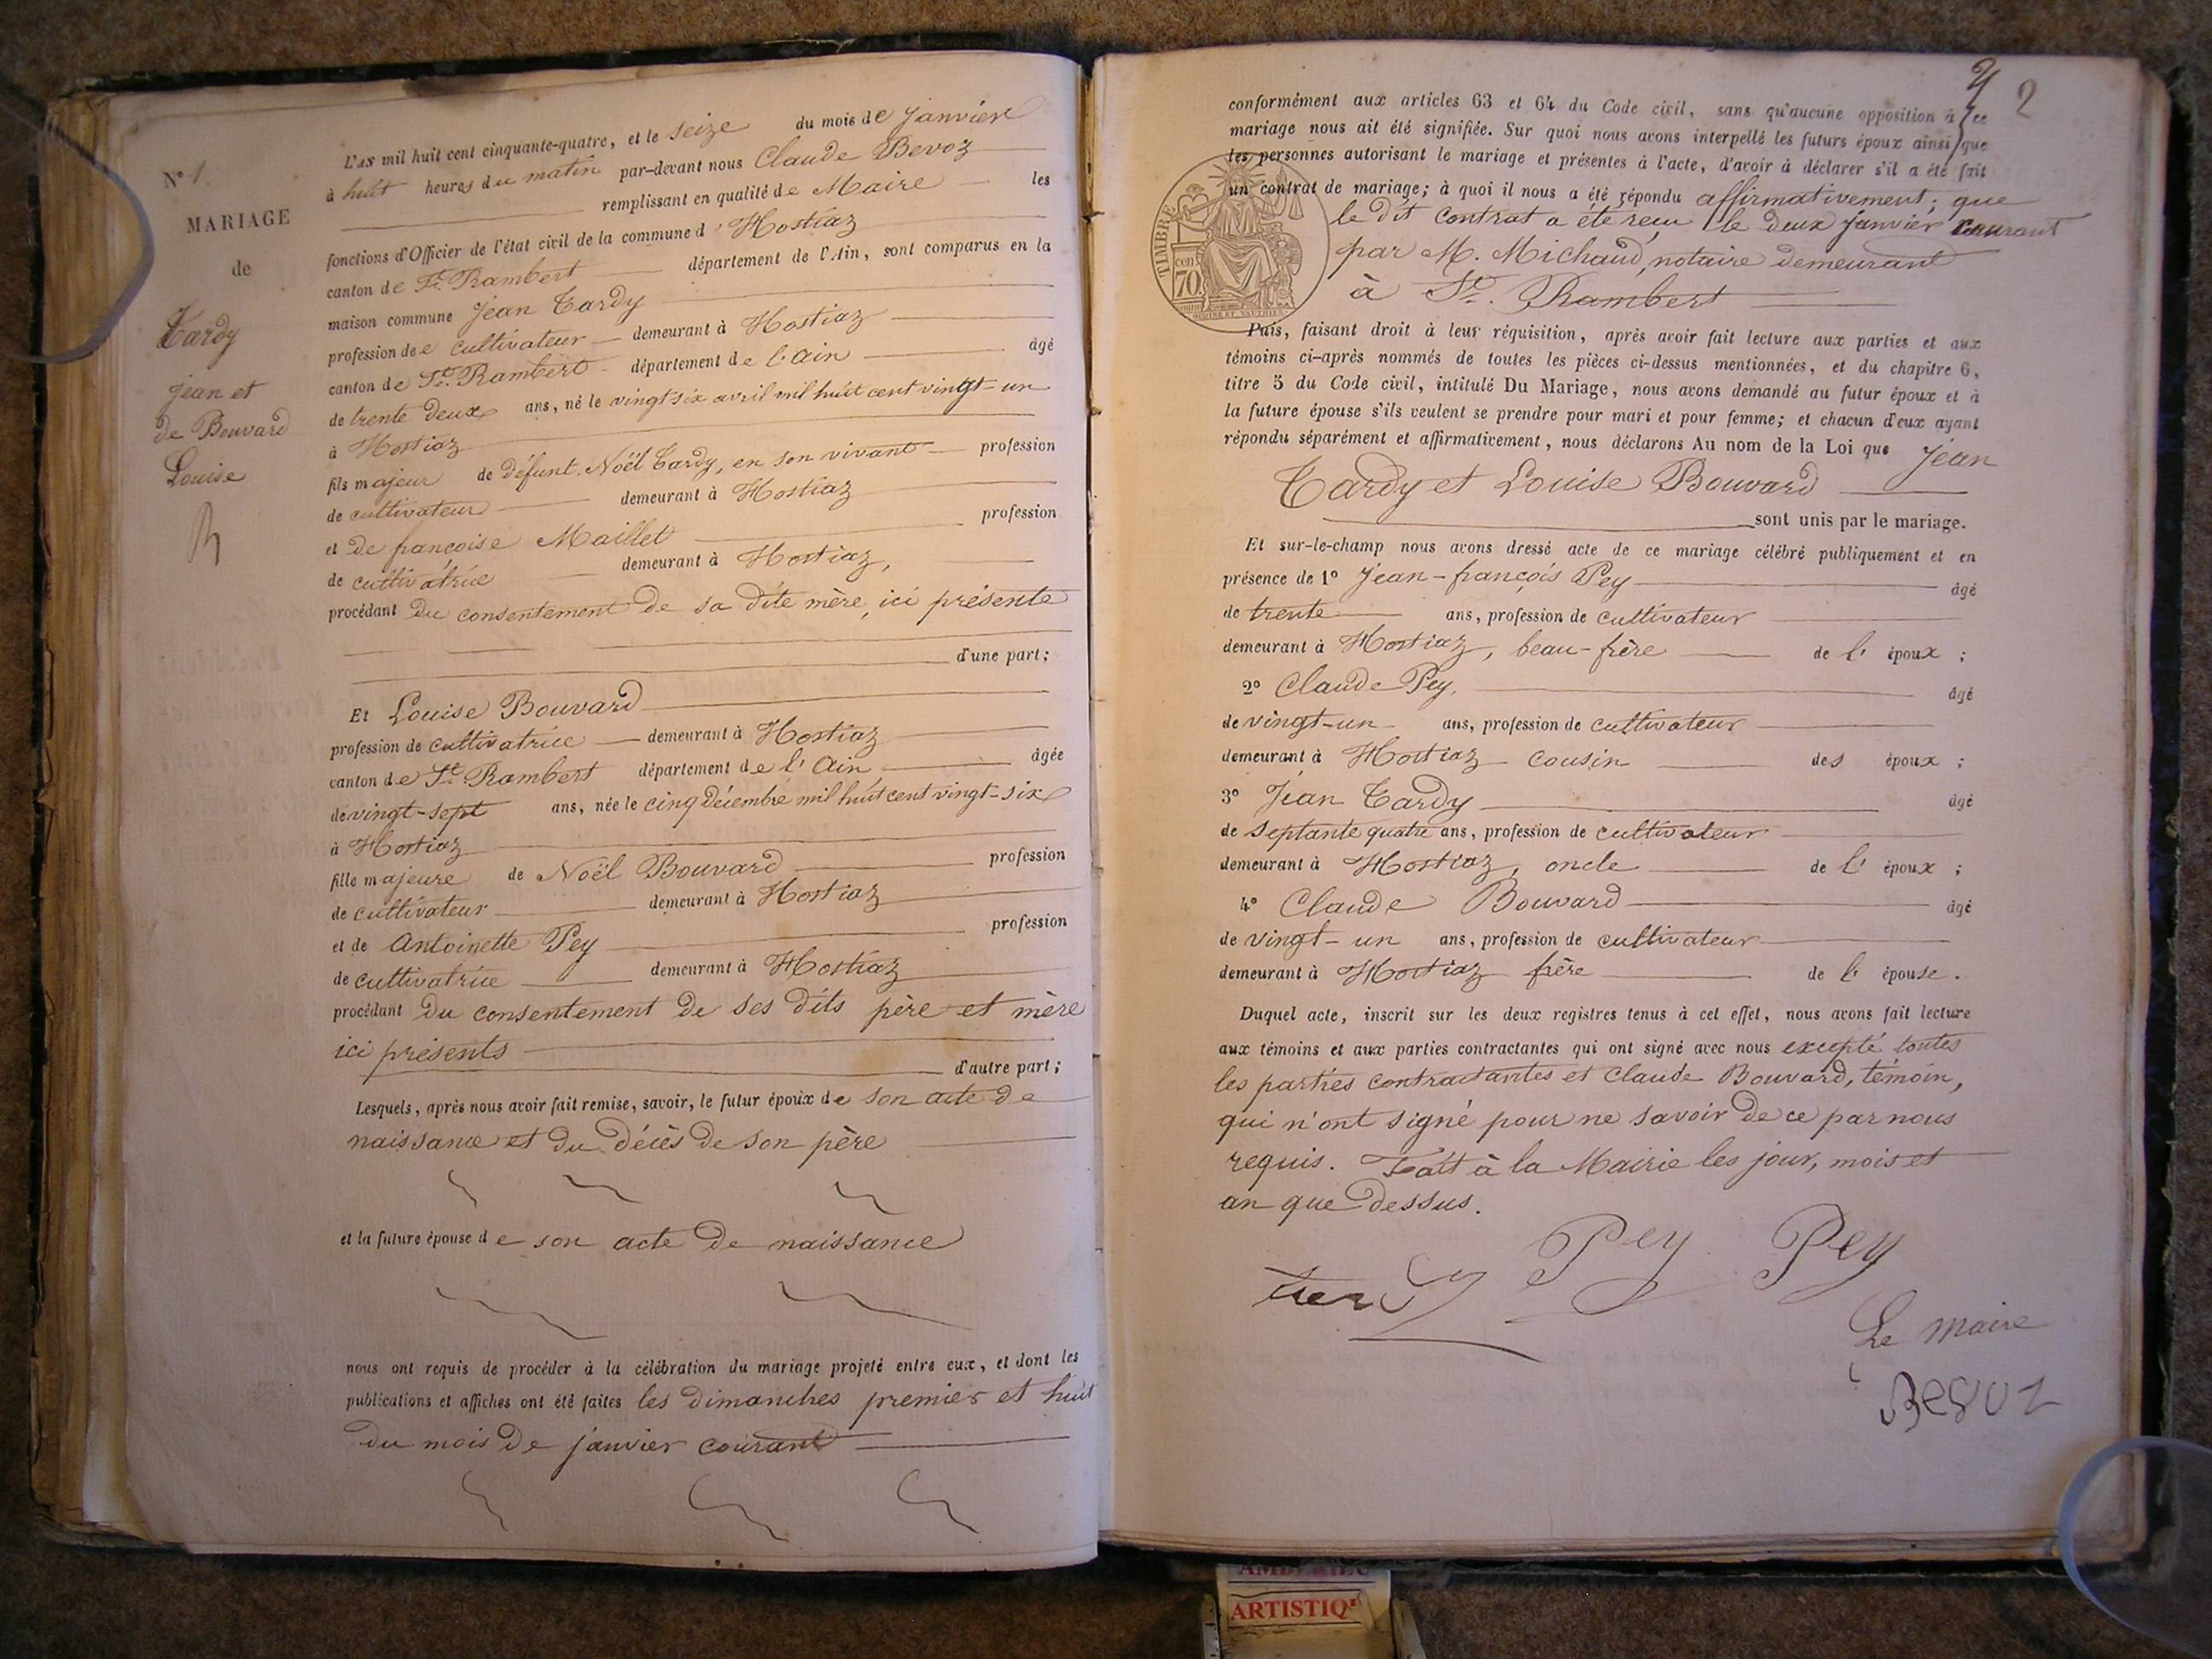 N° 1.
MARIAGE
de
Tardy
Jean et
de Bouvard
Louise
L'AN mil huit cent cinquante-quatre, et le seize du mois de janvier
à huit heures du matin par-devant nous Claude Bevoz
remplissant en qualité de Maire les
fonctions d'Officier de l'état civil de la commune d'Hostiaz
canton de St. Rambert département de l'Ain, sont comparus en la
maison commune Jean Tardy
profession de cultivateur demeurant à Hostiaz
canton de St. Rambert département de l'Ain âgé
de trente deux ans, né le vingt six avril mil huit cent vingt-un
à Hostiaz
fils majeur de défunt Noël Tardy, en son vivant profession
de cultivateur demeurant à Hostiaz
et de françoise Maillet profession
de cultivatrice demeurant à Hostiaz,
procédant du consentement de sa dite mère, ici présente
d'une part;
Et Louise Bouvard
profession de cultivatrice demeurant à Hostiaz
canton de St. Rambert département de l'Ain âgée
de vingt-sept ans, née le cinq décembre mil huit cent vingt-six
à Hostiaz
fille majeure de Noël Bouvard profession
de cultivateur demeurant à Hostiaz
et de Antoinette Pey profession
de cultivatrice demeurant à Hostiaz
procédant du consentement de ses dits père et mère
ici présents
d'autre part;
Lesquels, après nous avoir fait remise, savoir, le futur époux de son acte de
naissance et du décès de son père
et la future épouse de son acte de naissance
nous ont requis de procéder à la célébration du mariage projeté entre eux, et dont les
publications et affiches ont été faites les dimanches premier et huit
du mois de janvier courant
2
conformément aux articles 63 et 64 du Code civil, sans qu'aucune opposition à ce
mariage nous ait été signifiée. Sur quoi nous avons interpellé les futurs époux ainsi que
les personnes autorisant le mariage et présentes à l'acte, d'avoir à déclarer s'il a été fait
un contrat de mariage; à quoi il nous a été répondu affirmativement; que
le dit contrat a été reçu le deux janvier courant
par M. Michaud, notaire demeurant
à St. Rambert
TIMBRE
70 cen
Puis, faisant droit à leur réquisition, après avoir fait lecture aux parties et aux
témoins ci-après nommés de toutes les pièces ci-dessus mentionnées, et du chapitre 6,
titre 5 du Code civil, intitulé Du Mariage, nous avons demandé au futur époux et à
la future épouse s'ils veulent se prendre pour mari et pour femme; et chacun d'eux ayant
répondu séparément et affirmativement, nous déclarons Au nom de la Loi que Jean
Tardy et Louise Bouvard
sont unis par le mariage.
Et sur-le-champ nous avons dressé acte de ce mariage célébré publiquement et en
présence de 1° Jean-françois Pey âgé
de trente ans, profession de cultivateur
demeurant à Hostiaz, beau-frère de l'époux;
2° Claude Pey. âgé
de vingt-un ans, profession de cultivateur
demeurant à Hostiaz cousin des époux;
3° Jean Tardy âgé
de septante quatre ans, profession de cultivateur
demeurant à Hostiaz, oncle de l'époux;
4° Claude Bouvard âgé
de vingt-un ans, profession de cultivateur
demeurant à Hostiaz frère de l'épouse.
Duquel acte, inscrit sur les deux registres tenus à cet effet, nous avons fait lecture
aux témoins et aux parties contractantes qui ont signé avec nous excepté toutes
les parties contractantes et Claude Bouvard, témoin,
qui n'ont signé pour ne savoir de ce par nous
requis. Fait à la Mairie les jour, mois et
an que dessus.
Pey Pey
Le Maire
Bevoz
ARTISTIQ